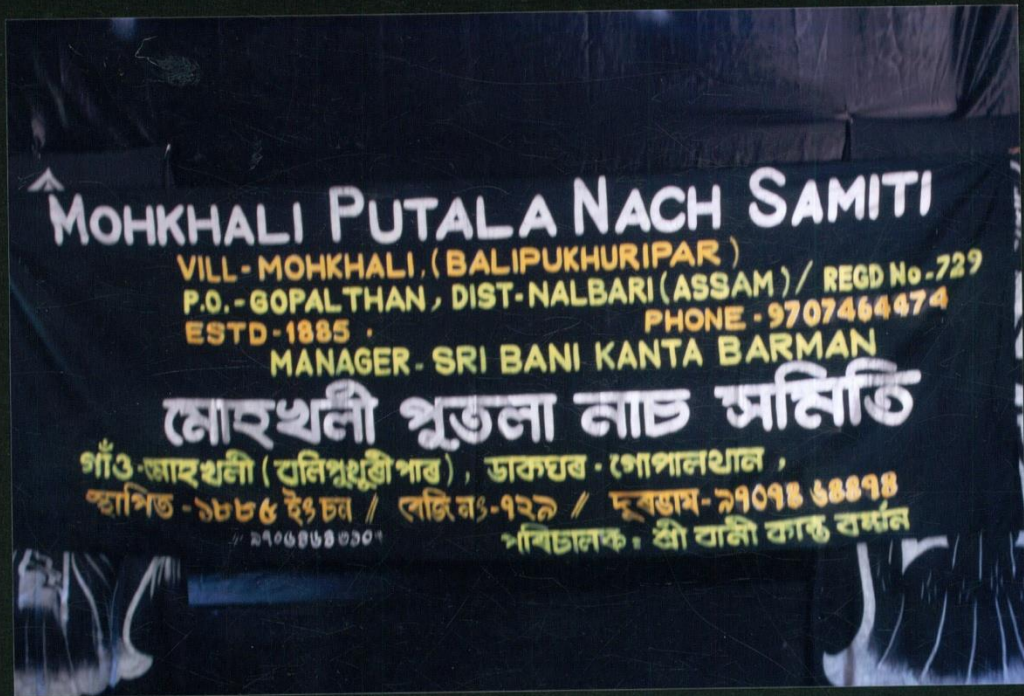 MOHKHALI PUTALA NACH SAMITI
VILL-MOHKHALI, (BALIPUKHURIPAR)
P.O.-GOPALTHAN, DIST-NALBARI (ASSAM) / REGD No-729
ESTD-1885. PHONE-9707464474
MANAGER-SRI BANI KANTA BARMAN
মোহখলী পুতলা নাচ সমিতি
গাঁও-মোহখলী (বালিপুখুৰীপাৰ), ডাকঘৰ-গোপালথান,
স্থাপিত-১৮৮৫ ইং চন // ৰেজি নং-৭২৯ // দূৰভাষ-৯৭০৭৪ ৬৪৪৭৪
পৰিচালক: শ্ৰী বানী কান্ত বৰ্মান